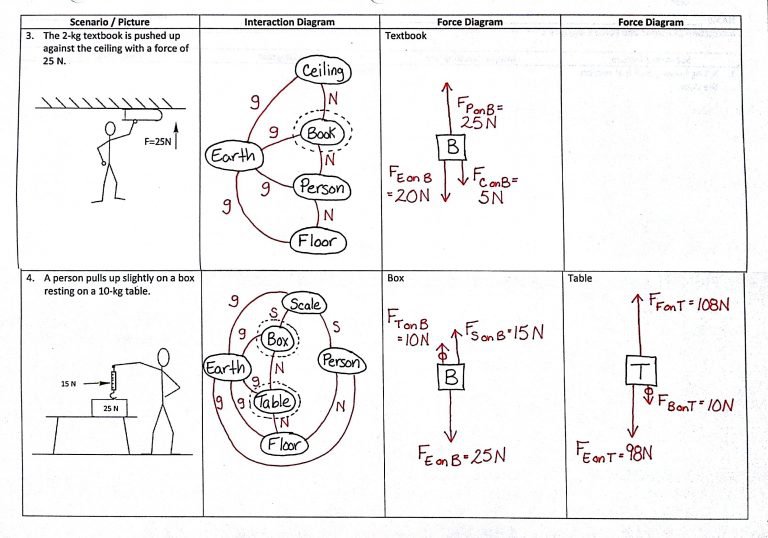 Scenario / Picture
Interaction Diagram
Force Diagram
Force Diagram
3. The 2-kg textbook is pushed up
against the ceiling with a force of
25 N.
F=25N
Ceiling
g
N
g
Book
Earth
N
g
Person
g
N
Floor
Textbook
F PonB =
25N
B
F EonB
=20N
F ConB =
5N
4. A person pulls up slightly on a box
resting on a 10-kg table.
15 N
25 N
g
Scale
S
S
g
Box
Earth
N
Person
g
g
g
Table
N
N
Floor
Box
F TonB
=10N
F SonB = 15N
B
F EonB = 25N
Table
F FonT = 108N
T
F BonT = 10N
F EonT = 98N